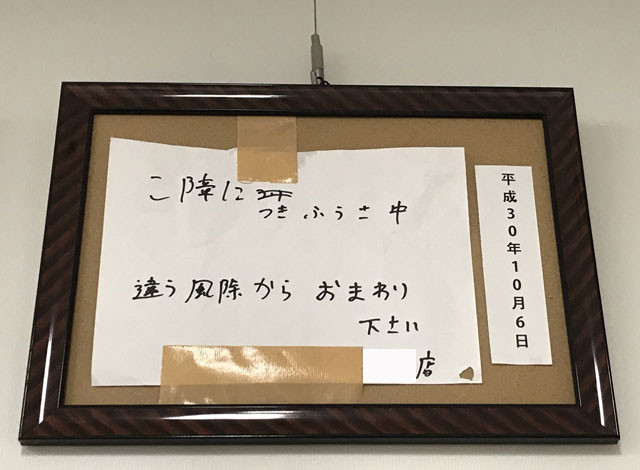 こ障に つき ふうさ中
違う風除から おまわり
下さい
店
平成30年10月6日